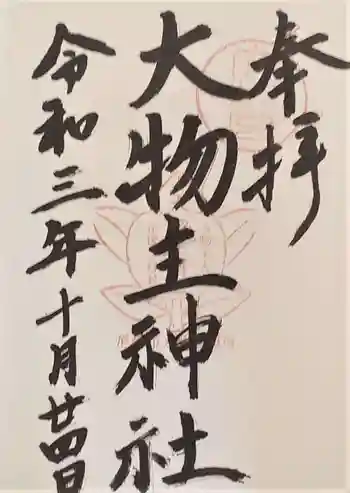 奉拝
大物主神社
令和三年十月廿四日